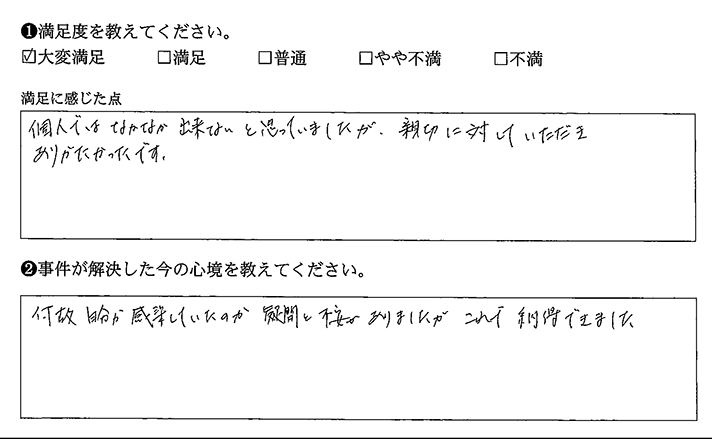 ❶満足度を教えてください。
☑大変満足 □満足 □普通 □やや不満 □不満
満足に感じた点
個人ではなかなか出来ないと思っていましたが、親切に対していただき
ありがたかったです。
❷事件が解決した今の心境を教えてください。
何故自分が感染していたのか疑問と不安がありましたがこれで納得できました